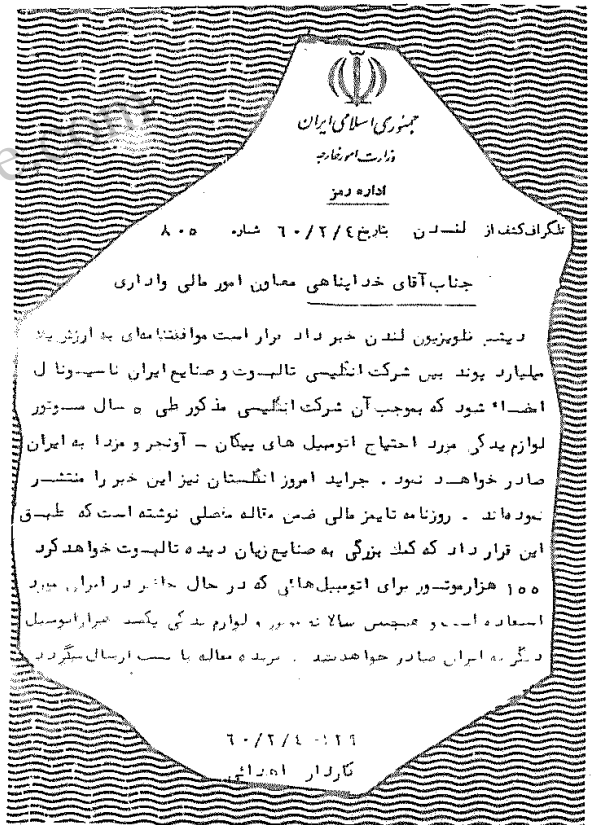 جمهوری اسلامی ایران
وزارت امور خارجه
اداره رمز
تلگراف کشف از لندن بتاریخ ۶۰/۲/۴ شماره ۸۰۵
جناب آقای خداپناهی معاون امور مالی و اداری
دیشب تلویزیون لندن خبر داد قرار است موافقتنامه‌ای به ارزش یک
میلیارد پوند بین شرکت انگلیسی تالبوت و صنایع ایران ناسیونال
امضاء شود که بموجب آن شرکت انگلیسی مذکور طی ۵ سال موتور
لوازم یدکی مورد احتیاج اتومبیل های پیکان ـ آونجر و مزدا به ایران
صادر خواهد نمود . جراید امروز انگلستان نیز این خبر را منتشر
نموده‌اند . روزنامه تایمز مالی ضمن مقاله مفصلی نوشته است که طبق
این قرار داد که کمک بزرگی به صنایع زیان دیده تالبوت خواهد کرد
۱۰۰ هزار موتور برای اتومبیل‌هائی که در حال حاضر در ایران مورد
استفاده است و همچنین سالانه موتور و لوازم یدکی یکصد هزار اتومبیل
دیگر به ایران صادر خواهد شد . بریده مقاله با پست ارسال میگردد
۱۲۹- ۶۰/۲/۴
کاردار اهدائی
e.com